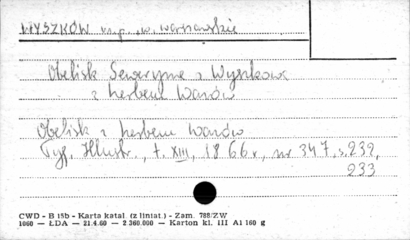 WYSZKÓW woj. w. warszawskie
Obelisk Seweryna z Wyszkowa
z herbem Wazów
Obelisk z herbem Wazów
Tyg. Illustr., t. XIII, 1866 r., nr 347, s. 232,
233
CWD - B 15b - Karta katal. (z liniat.) - Zam. 788/ZW
1060 — ŁDA — 21.4.60 — 2 360.000 — Karton kl. III A1 160 g